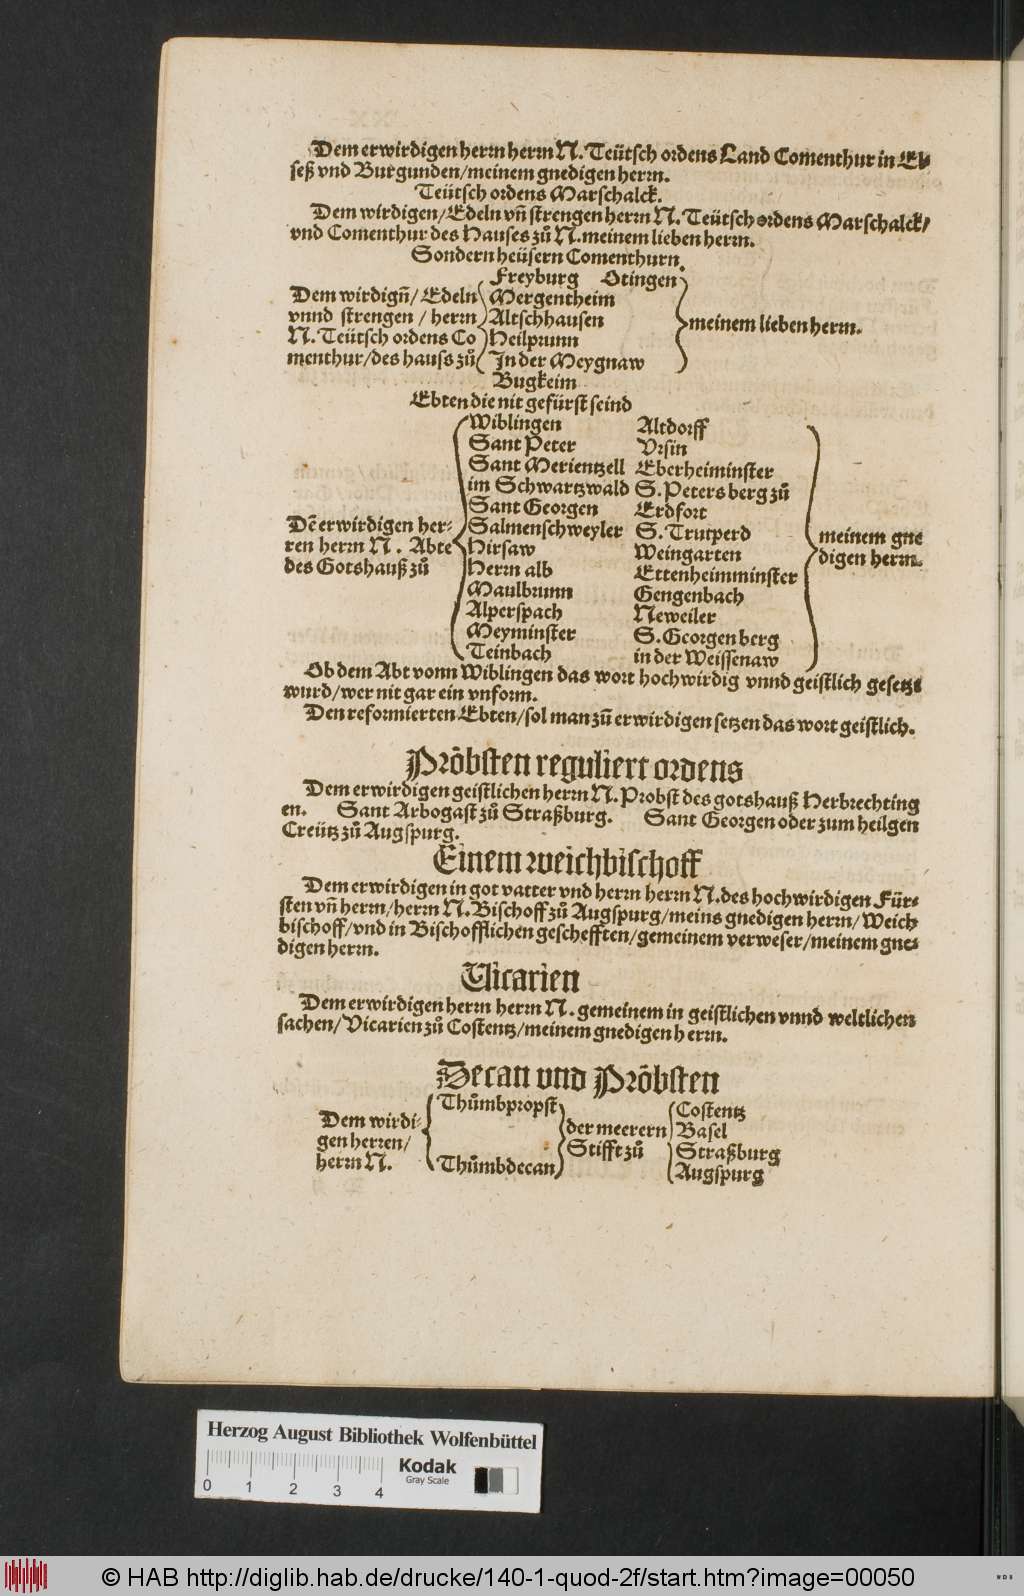 Dem erwirdigen herrn herrn N. Teütsch ordens Land Comenthur in El-
seß vnd Burgunden/meinem gnedigen herrn.
Teütsch ordens Marschalck.
Dem wirdigen/Edeln vñ strengen herrn N. Teütsch ordens Marschalck/
vnd Comenthur des Hauses zů N. meinem lieben herrn.
Sondern heüsern Comenthurn.
Dem wirdigñ/ Edeln
vnnd strengen / herrn
N. Teütsch ordens Co
menthur/des hauß zů
Freyburg Otingen
Mergentheim
Altschhausen
Heilprunn
In der Meygnaw
Bugkeim
meinem lieben herrn.
Ebten die nit gefürst seind
Dẽ erwirdigen her-
ren herrn N. Abte
des Gotshauß zů
Wiblingen
Sant Peter
Sant Merientzell
im Schwartzwald
Sant Georgen
Salmenschweyler
Hirsaw
Herrn alb
Maulbrunn
Alperspach
Meyminster
Teinbach
Altdorff
Vrsin
Eberheiminster
S. Petersberg zů
Erdfort
S. Trutperd
Weingarten
Ettenheimminster
Gengenbach
Neweiler
S. Georgen berg
in der Weissenaw
meinem gne
digen herrn.
Ob dem Abt vonn Wiblingen das wort hochwirdig vnnd geistlich gesetzt
wurd/wer nit gar ein vnform.
Den reformierten Ebten/sol man zů erwirdigen setzen das wort geistlich.
Pröbsten reguliert ordens
Dem erwirdigen geistlichen herrn N. Probst des gotshauß Herbrechting
en. Sant Arbogast zů Straßburg. Sant Georgen oder zum heilgen
Creütz zů Augspurg.
Einem weichbischoff
Dem erwirdigen in got vatter vnd herrn herrn N. des hochwirdigen Für-
sten vñ herrn/herrn N. Bischoff zů Augspurg/meins gnedigen herrn/ Weich
bischoff/vnd in Bischofflichen geschefften/gemeinem verweser/meinem gne-
digen herrn.
Vicarien
Dem erwirdigen herrn herrn N. gemeinem in geistlichen vnnd weltlichen
sachen/ Vicarien zů Costentz/meinem gnedigen herrn.
Decan vnd Pröbsten
Dem wirdi-
gen herren/
herrn N.
Thůmbpropst
Thůmbdecan
der meerern
Stifft zů
Costentz
Basel
Straßburg
Augspurg
Herzog August Bibliothek Wolfenbüttel
Kodak
Gray Scale
0 1 2 3 4
© HAB http://diglib.hab.de/drucke/140-1-quod-2f/start.htm?image=00050